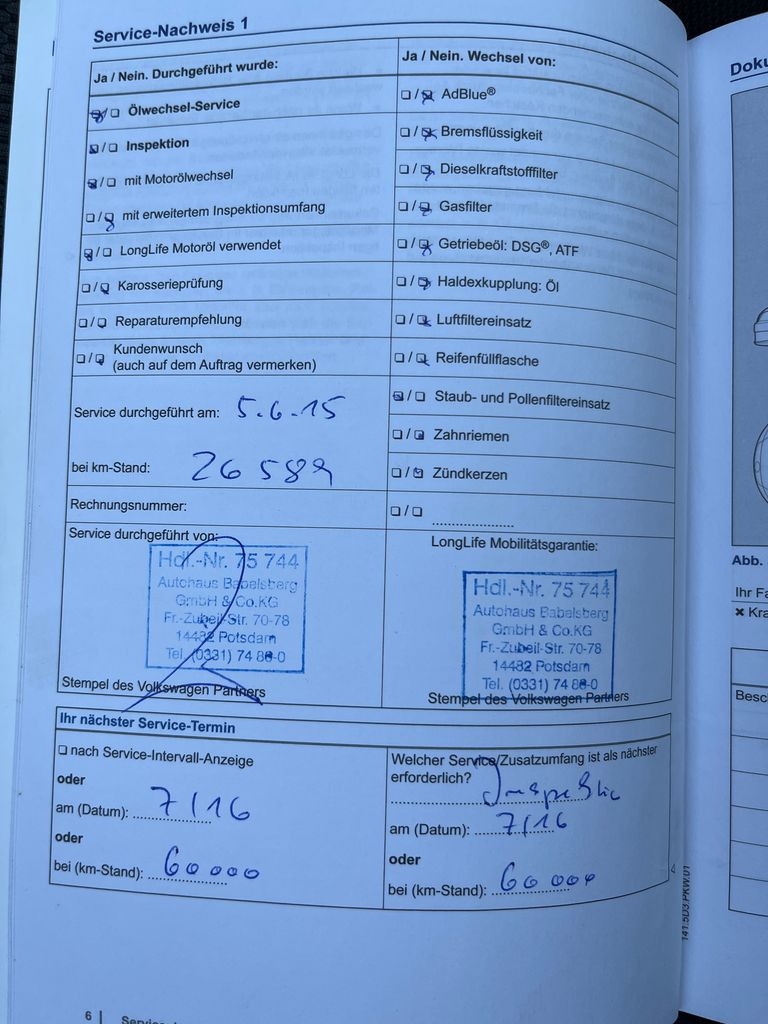 Service-Nachweis 1
Ja / Nein. Durchgeführt wurde:
☒/☐ Ölwechsel-Service
☒/☐ Inspektion
☒/☐ mit Motorölwechsel
☐/☒ mit erweitertem Inspektionsumfang
☒/☐ LongLife Motoröl verwendet
☐/☒ Karosserieprüfung
☐/☒ Reparaturempfehlung
☐/☒ Kundenwunsch
(auch auf dem Auftrag vermerken)
Service durchgeführt am: 5.6.15
bei km-Stand: 26589
Rechnungsnummer:
Service durchgeführt von:
Hdl.-Nr. 75 744
Autohaus Babelsberg
GmbH & Co.KG
Fr.-Zubeil-Str. 70-78
14482 Potsdam
Tel. (0331) 74 88-0
Stempel des Volkswagen Partners
Ja / Nein. Wechsel von:
☐/☒ AdBlue®
☐/☒ Bremsflüssigkeit
☐/☒ Dieselkraftstofffilter
☐/☒ Gasfilter
☐/☒ Getriebeöl: DSG®, ATF
☐/☒ Haldexkupplung: Öl
☐/☒ Luftfiltereinsatz
☐/☒ Reifenfüllflasche
☒/☐ Staub- und Pollenfiltereinsatz
☐/☒ Zahnriemen
☐/☒ Zündkerzen
☐/☐
LongLife Mobilitätsgarantie:
Hdl.-Nr. 75 744
Autohaus Babelsberg
GmbH & Co.KG
Fr.-Zubeil-Str. 70-78
14482 Potsdam
Tel. (0331) 74 88-0
Stempel des Volkswagen Partners
Ihr nächster Service-Termin
☐ nach Service-Intervall-Anzeige
oder
am (Datum): 7/16
oder
bei (km-Stand): 60000
Welcher Service/Zusatzumfang ist als nächster
erforderlich?
Inspektion
am (Datum): 7/16
oder
bei (km-Stand): 60000
141.5D3.PKW.01
6
Doku
Abb.
Ihr Fa
✖ Kra
Besc